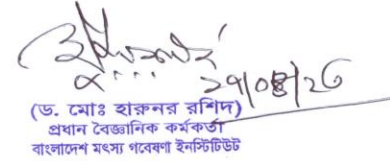 (ড. মোঃ হারুনর রশিদ)
প্রধান বৈজ্ঞানিক কর্মকর্তা
বাংলাদেশ মৎস্য গবেষণা ইনস্টিটিউট